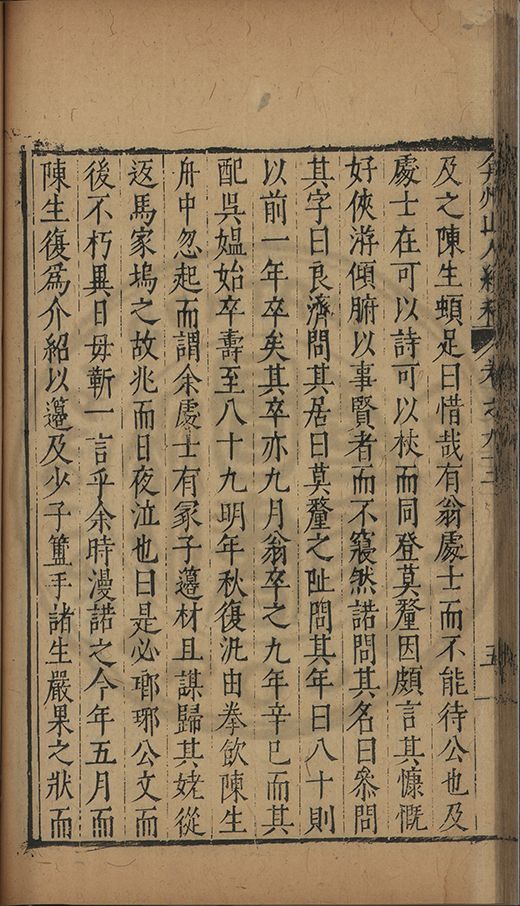 弇州山人續稿 卷之九十三 五
及之陳生頓足曰惜哉有翁處士而不能待公也及
處士在可以詩可以杖而同登莫釐因頗言其慷慨
好俠游傾腑以事賢者而不寤然諾問其名曰叅問
其字曰良濟問其居曰莫釐之趾問其年曰八十則
以前一年卒矣其卒亦九月翁卒之九年辛巳而其
配吳媼始卒壽至八十九明年秋復汎由拳飲陳生
舟中忽起而謂余處士有冡子籩材且謀歸其姥從
返馬家塢之故兆而日夜泣也曰是必瑯琊公文而
後不朽異日毋靳一言乎余時漫諾之今年五月而
陳生復爲介紹以籩及少子簠手諸生嚴果之狀而